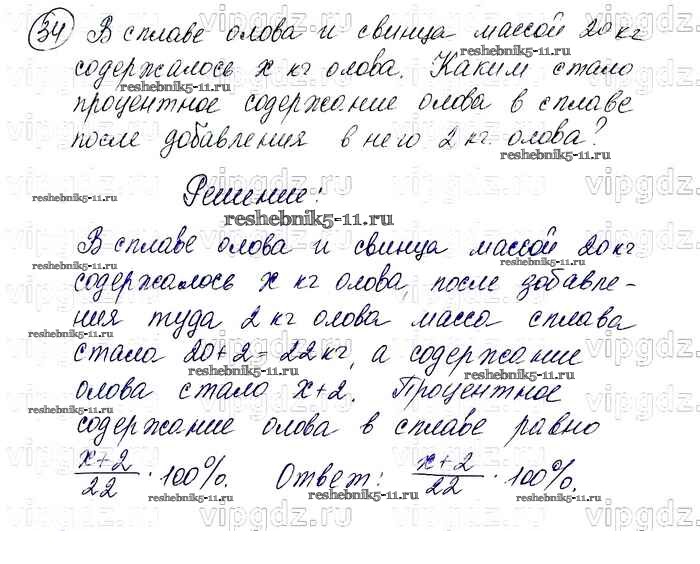 34 В сплаве олова и свинца массой 20 кг
содержалось x кг олова. Каким стало
процентное содержание олова в сплаве
после добавления в него 2 кг. олова?
Решение:
В сплаве олова и свинца массой 20 кг
содержалось x кг олова, после добавле-
ния туда 2 кг олова масса сплава
стала 20+2=22 кг, а содержание
олова стало x+2. Процентное
содержание олова в сплаве равно
x+2/22 · 100%. Ответ: x+2/22 · 100%.
reshebnik5-11.ru
vipgdz.ru